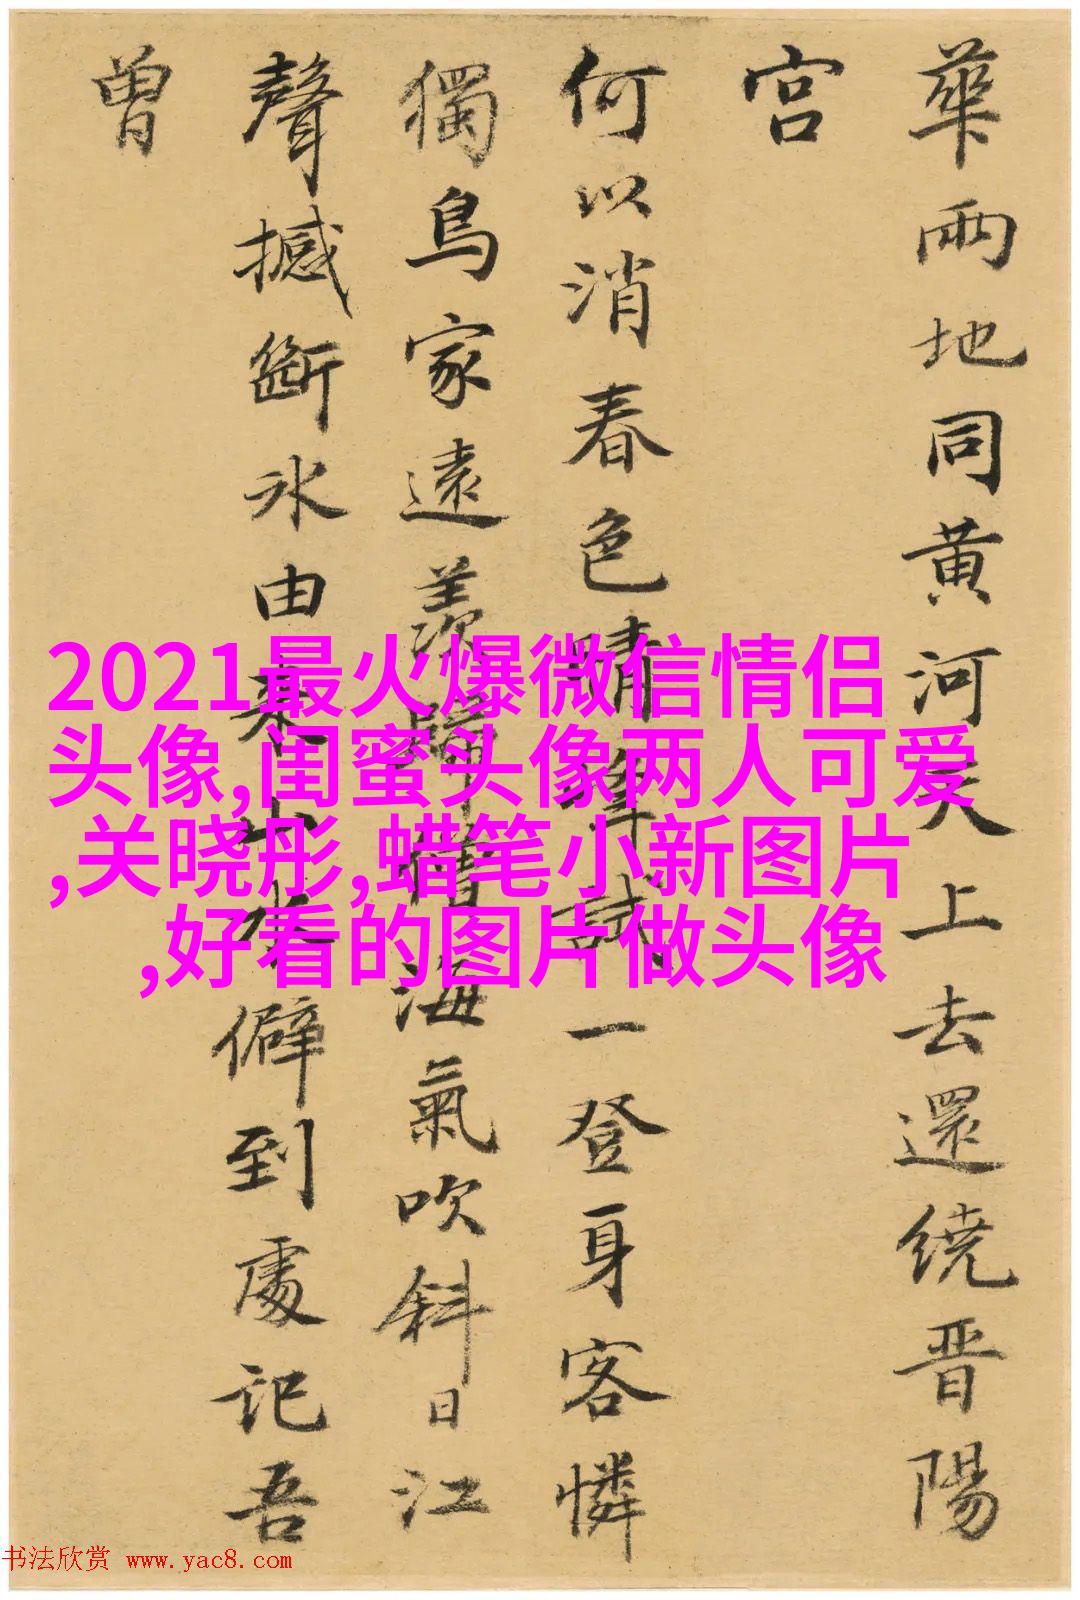 華兩地同黄河天上去還繞晋陽
宫
何以消春色晴峰試一登身客憐
獨鳥家遠羨歸僧海氣吹斜日江
聲撼斷氷由来山水僻到處記吾
曾
2021最火爆微信情侣
头像,闺蜜头像两人可爱
,关晓彤,蜡笔小新图片
,好看的图片做头像
书法欣赏 www.yac8.com